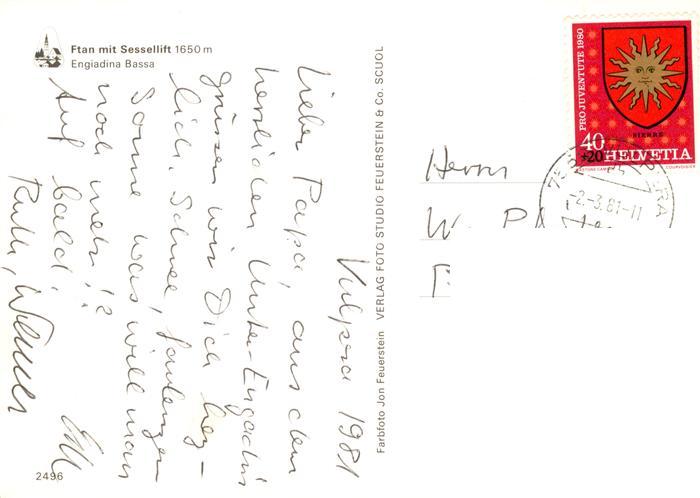 Ftan mit Sessellift 1650 m
Engiadina Bassa
Vulpera 1981
Lieber Papa, aus dem
herzlichen Unter-Engadin
grüssen wir Dich herz-
lich. Schnee, faulenzen
Sonne was will man
noch mehr!?
Auf bald!
Ruth, Werner
2496
Farbfoto Jon Feuerstein VERLAG FOTO STUDIO FEUERSTEIN & Co. SCUOL
PRO JUVENTUTE 1980
SIERRE
40
+20 HELVETIA
COURVOISIER
-2.-3.81-11
Herrn
W. P